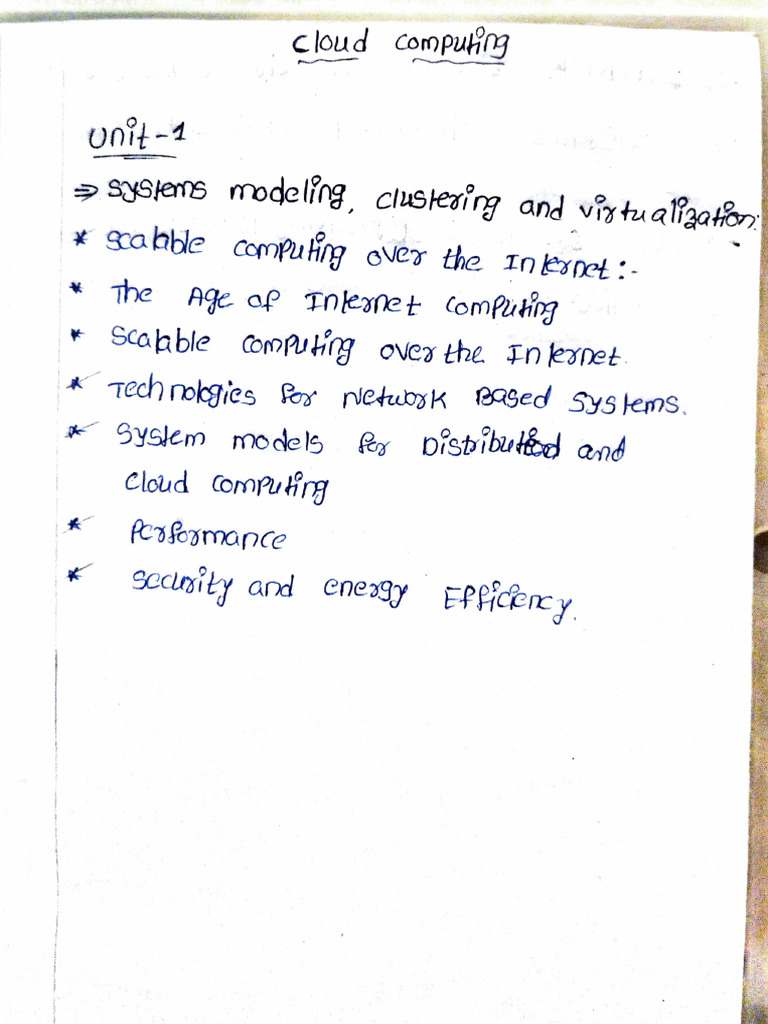 Cloud Computing
Unit-1
⇒ Systems modeling, Clustering and virtualization:
* Scalable Computing over the Internet:-
* The Age of Internet Computing
* Scalable Computing over the Internet.
* Technologies for Network Based Systems.
* System models for Distributed and
Cloud Computing
* Performance
* Security and energy Efficiency.